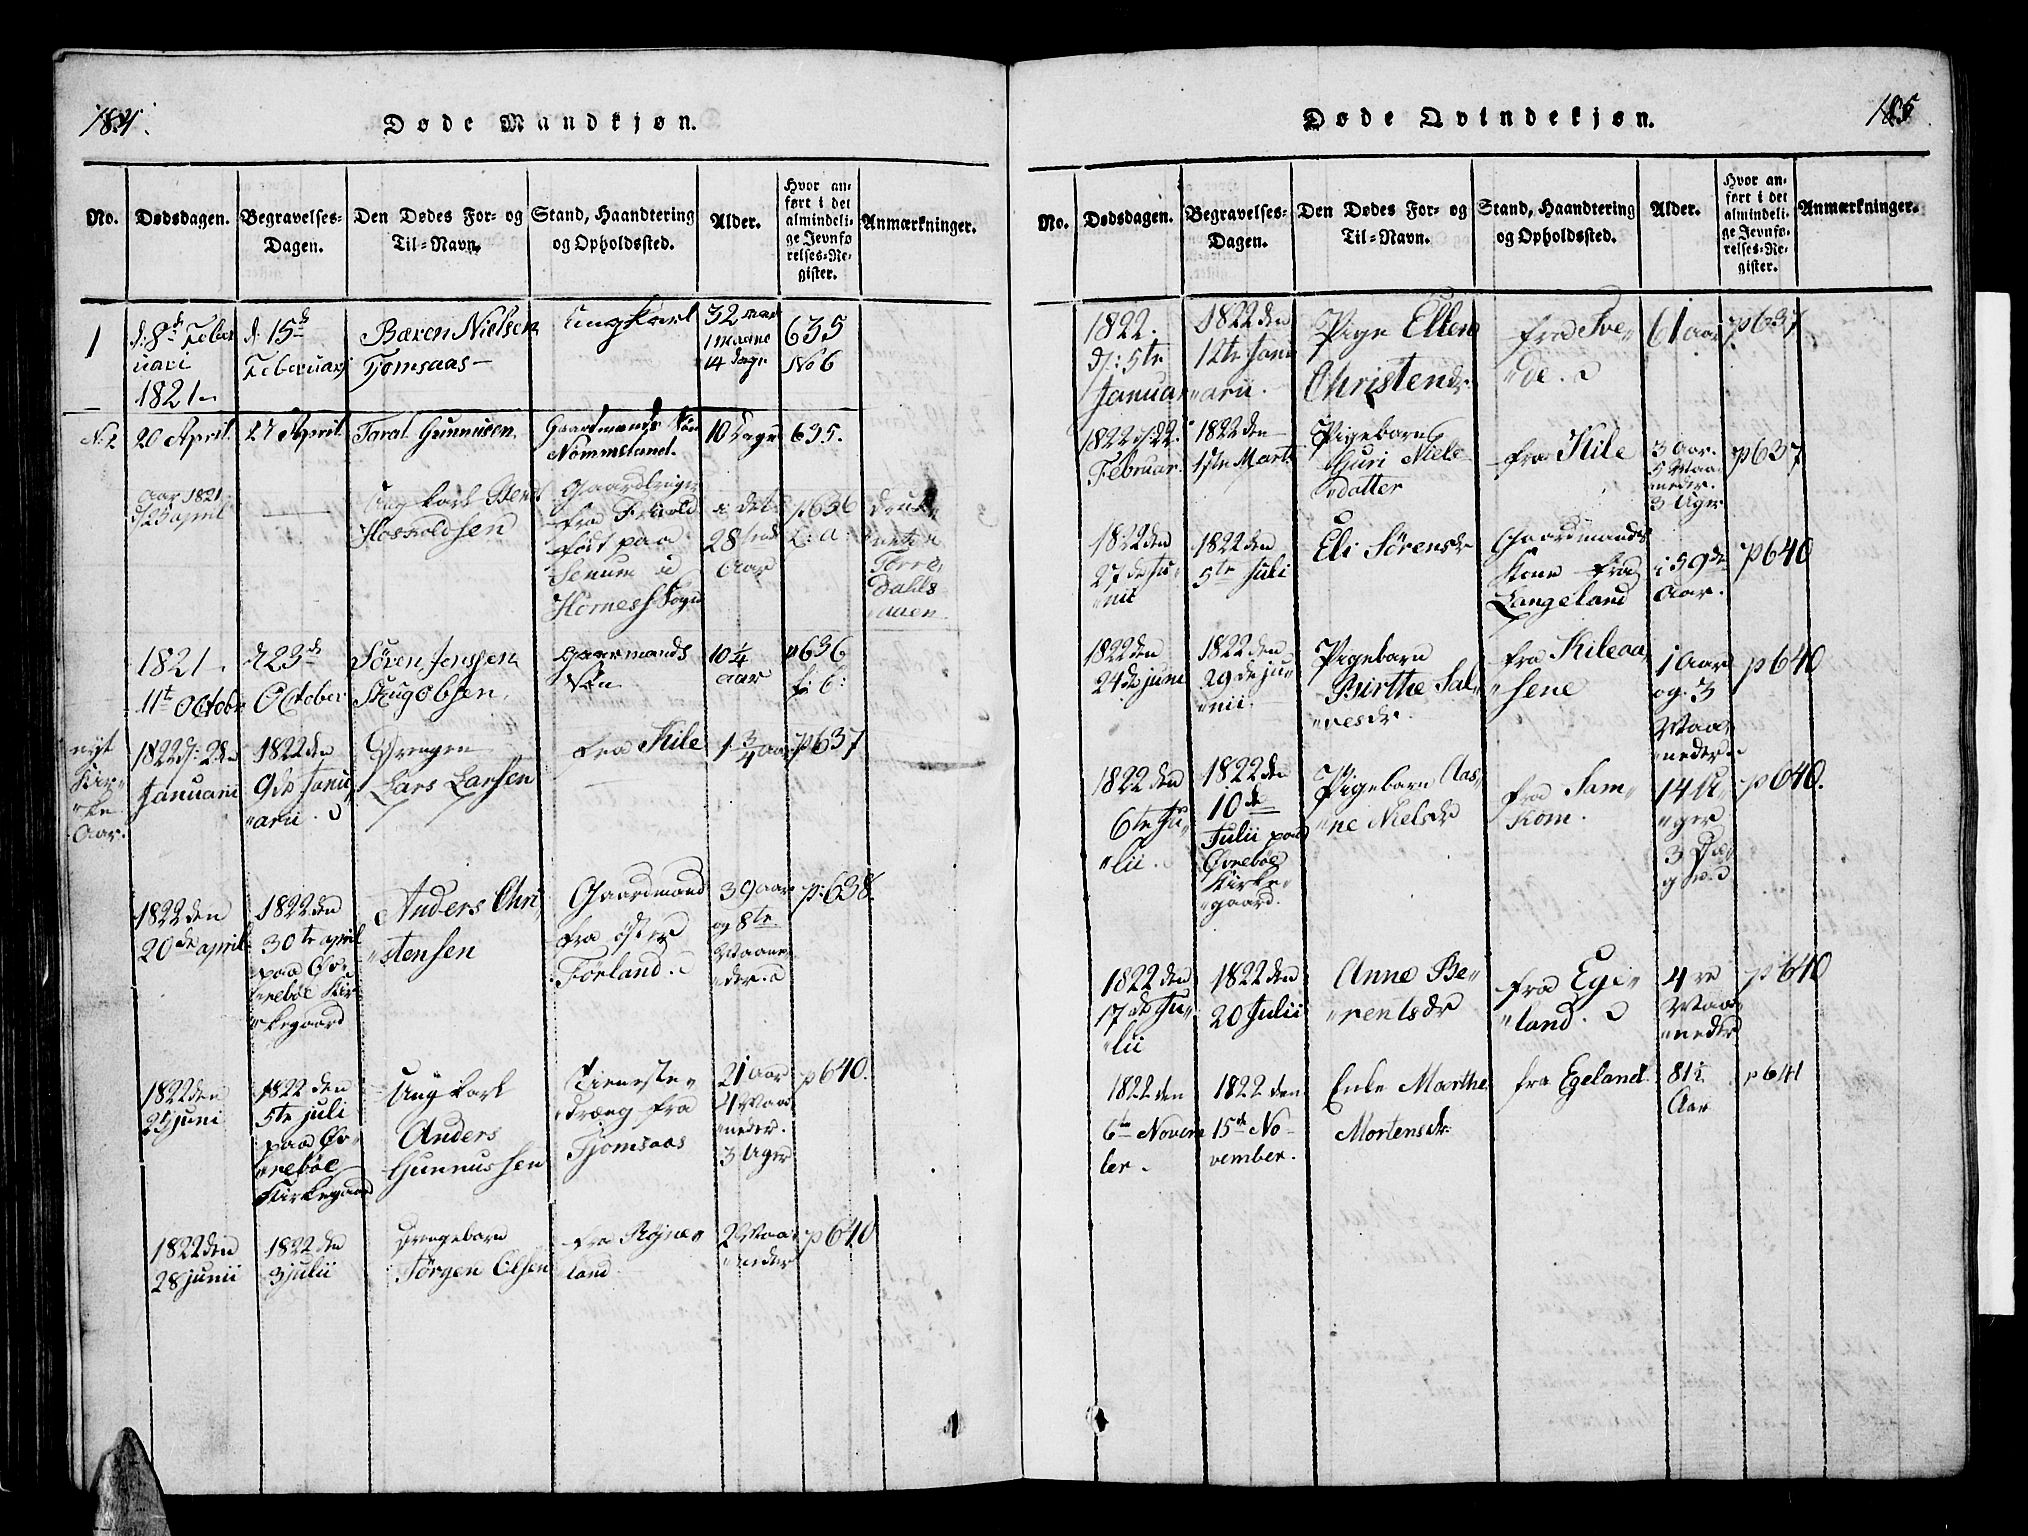 184.
Døde Mandkjøn.
No.
Dødsdagen.
Begravelses-
Dagen.
Den Dødes For- og
Til-Navn.
Stand, Haandtering
og Opholdssted.
Alder.
Hvor an-
ført i det
almindeli-
ge Jevnfø
relses-Re-
gister.
Anmærkninger.
1
d. 8de Febr
uari
1821
d. 15de
Februarj
Baren Nielsen
Tjomsaas
Ungkarl
32 aar
1 maaned
14 dage
635
No 6
No 2
20 April.
27 April
Taral Gunnusen.
Gaardmands Søn
Nommeland.
10 Dage
635.
Aar 1821
d/25 april
Ung karl Bent
Hoskoldsen
Gaardbruger
fra
født paa
Senum i
Hornes Sogn
i det
28 sinde
Aar
p636
L: a:
druk-
net i
Torri-
Dahls
aaen.
1821.
11te October
d 23de
October
Søren Jenssen
Skugobsen.
Gaarmands
Søn
10 1/4
aar
p636
L: 6:
nyt
Kir-
"ke
Aar.
1822 d: 2den
Januarii
1822 den
9de Janu-
"arii.
Drengen
Lars Larsen
fra Kile
1 3/4 aar
p637
1822 den
20de april
1822 den
30te april
paa Øv-
"rebøe Kir-
"kegaard
Anders Chri-
"stensen
Gaardmand
fra øster
Forland.
39 aar
og 8te
Maane-
"der.
p:638.
1822 den
25 juni
1822 den
5te juli
paa Øv-
"rebøe
Kirkegaard
Ung karl
Anders
Gunnussen
Tieneste-
dreng fra
Tjomsaas
21 aar
4 Maa-
"neder.
3 Uger
p640.
1822 den
28 junii
1822 den
3 julii
Drengebarn
Jørgen Olsen
fra Røine-
land
2 Maa-
"neder
p640
185.
Døde Qvindekjøn.
No.
Dødsdagen.
Begravelses-
Dagen.
Den Dødes For- og
Til-Navn.
Stand, Haandtering
og Opholdssted.
Alder.
Hvor an-
ført i det
almindeli-
ge Jevnfø-
relses-Re-
gister.
Anmærkninger.
1822.
d: 5te
Januar
1822 den
12te Janu
"arii.
Pige Ellen
Christensdr
fra Tve-
"de.
61 aar
p637
1822 d: 22.
Februar
1822 den
1ste Marts
Pigebarn
Guri Niels-
"datter
fra Kile
3 Aar.
5 Maa-
neder.
3 Uger
p637
1822 den
27de Ju-
"nii
1822 den
5te Juli
Eli Sørensdr
Gaardmands
Kone fra
Langeland
i 59de
Aar.
p640
1822 den
24de juni
1822 den
29de ju-
"nii.
Pigebarn
Birthe Sal-
"vesdr.
fra Kileaa-
"sene
1 Aar
og 3
Maa-
neder
p640
1822 den
6te Ju-
"lii.
1822 den
10de
Julii paa
Øvrebøe
Kirke-
gaard.
Pigebarn Aas-
"ne Nielsdr
fra Sam-
Kom.
14 U-
"ger
3 Da-
ge.
p640.
1822 den
17de Ju-
"lii
1822 den
20 Julii
Anne Be-
"rentsdr
fra Ege-
"land.
4re
Maa-
"neder
p640
1822 den
6te Novem
ber.
1822 den
15de No-
vember.
Enke Marthe
Mortensdr.
fra Egeland
81 1/2
Aar
p641